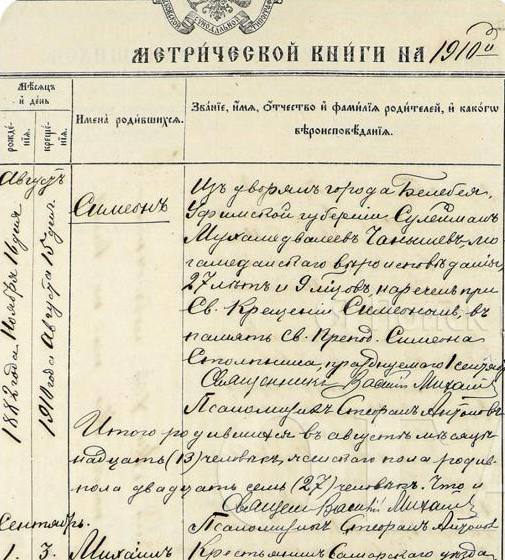 МЕТРИ́ЧЕСКОЙ КНИ́ГИ НА 1910 г.
Мѣсяцъ и день
рожде́нія.
креще́нія.
Имена̀ роди́вшихся.
Зва́ніе, и́мя, о́тчество и фами́лія роди́телей, и како́гѡ вѣроисповѣ́данія.
Августъ
1882 года Ноября 16 дня
1910 года Августа 15 дня.
Симеонъ
Изъ дворянъ города Белебея,
Уфимской губернии Сулейманъ
Мухамедвалеевъ Чанышевъ, мо-
гамеданскаго вѣроисповѣданія,
27 лѣтъ и 9 мѣсяцовъ нареченъ при
Св. Крещении Симеономъ, въ
память Св. Препод. Симеона
Столпника, празднуемаго 1 сентября
Священникъ Василій Михайл
Псаломщикъ Стефанъ Антоновъ
Итого родившихся въ августѣ мѣсяцѣ
надцать (13) человѣкъ, женскаго пола родив-
пола двадцать семь (27) человѣкъ. Что и
Священ Василій Михайл
Сентябрь.
Псаломщикъ Стефанъ Антонов
1. 3. Михаилъ
Крестьянинъ Самарскаго уѣзда